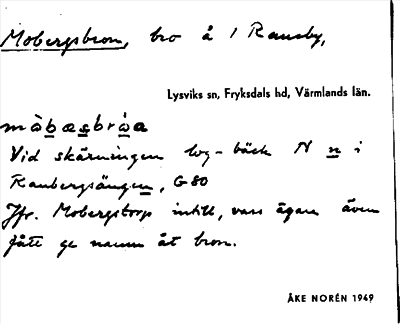 Mobergsbron, bro å 1 Ransby,
Lysviks sn, Fryksdals hd, Värmlands län.
måbæsbråa
Vid skärningen log-bäck N n i
Ranbergsängen, G80
Jfr. Mobergstorp intill, vars ägare även
fått ge namn åt bron.
ÅKE NORÉN 1949